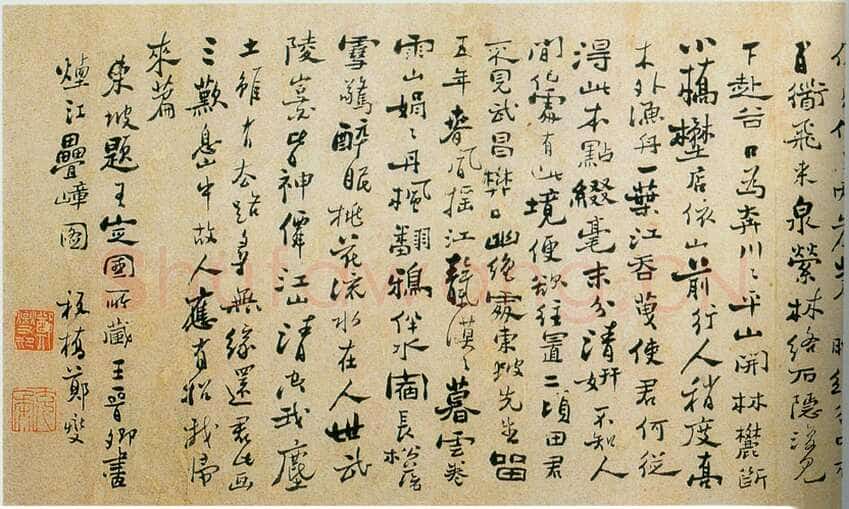 百衜飛來泉縈林絡石隱復見
下赴谷口為奔川〻平山開林麓斷
小橋壄店依山前行人稍度高
木外漁舟一葉江吞天使君何從
得此本點綴毫末分清妍不知人
間何處有此境便欲往置二頃田君
不見武昌樊口幽絕處東坡先生留
五年春風搖江天漠〻暮雲卷
雨山娟〻丹楓翻鴉伴水宿長松落
雪驚醉眠桃花流水在人世武
陵豈皆神僊江山清空我塵
土雖有去路尋無緣還君此畫
三歎息山中故人應有招我歸
來篇
東坡題王定國所藏王晉卿畫
煙江疊嶂圖 板橋鄭燮